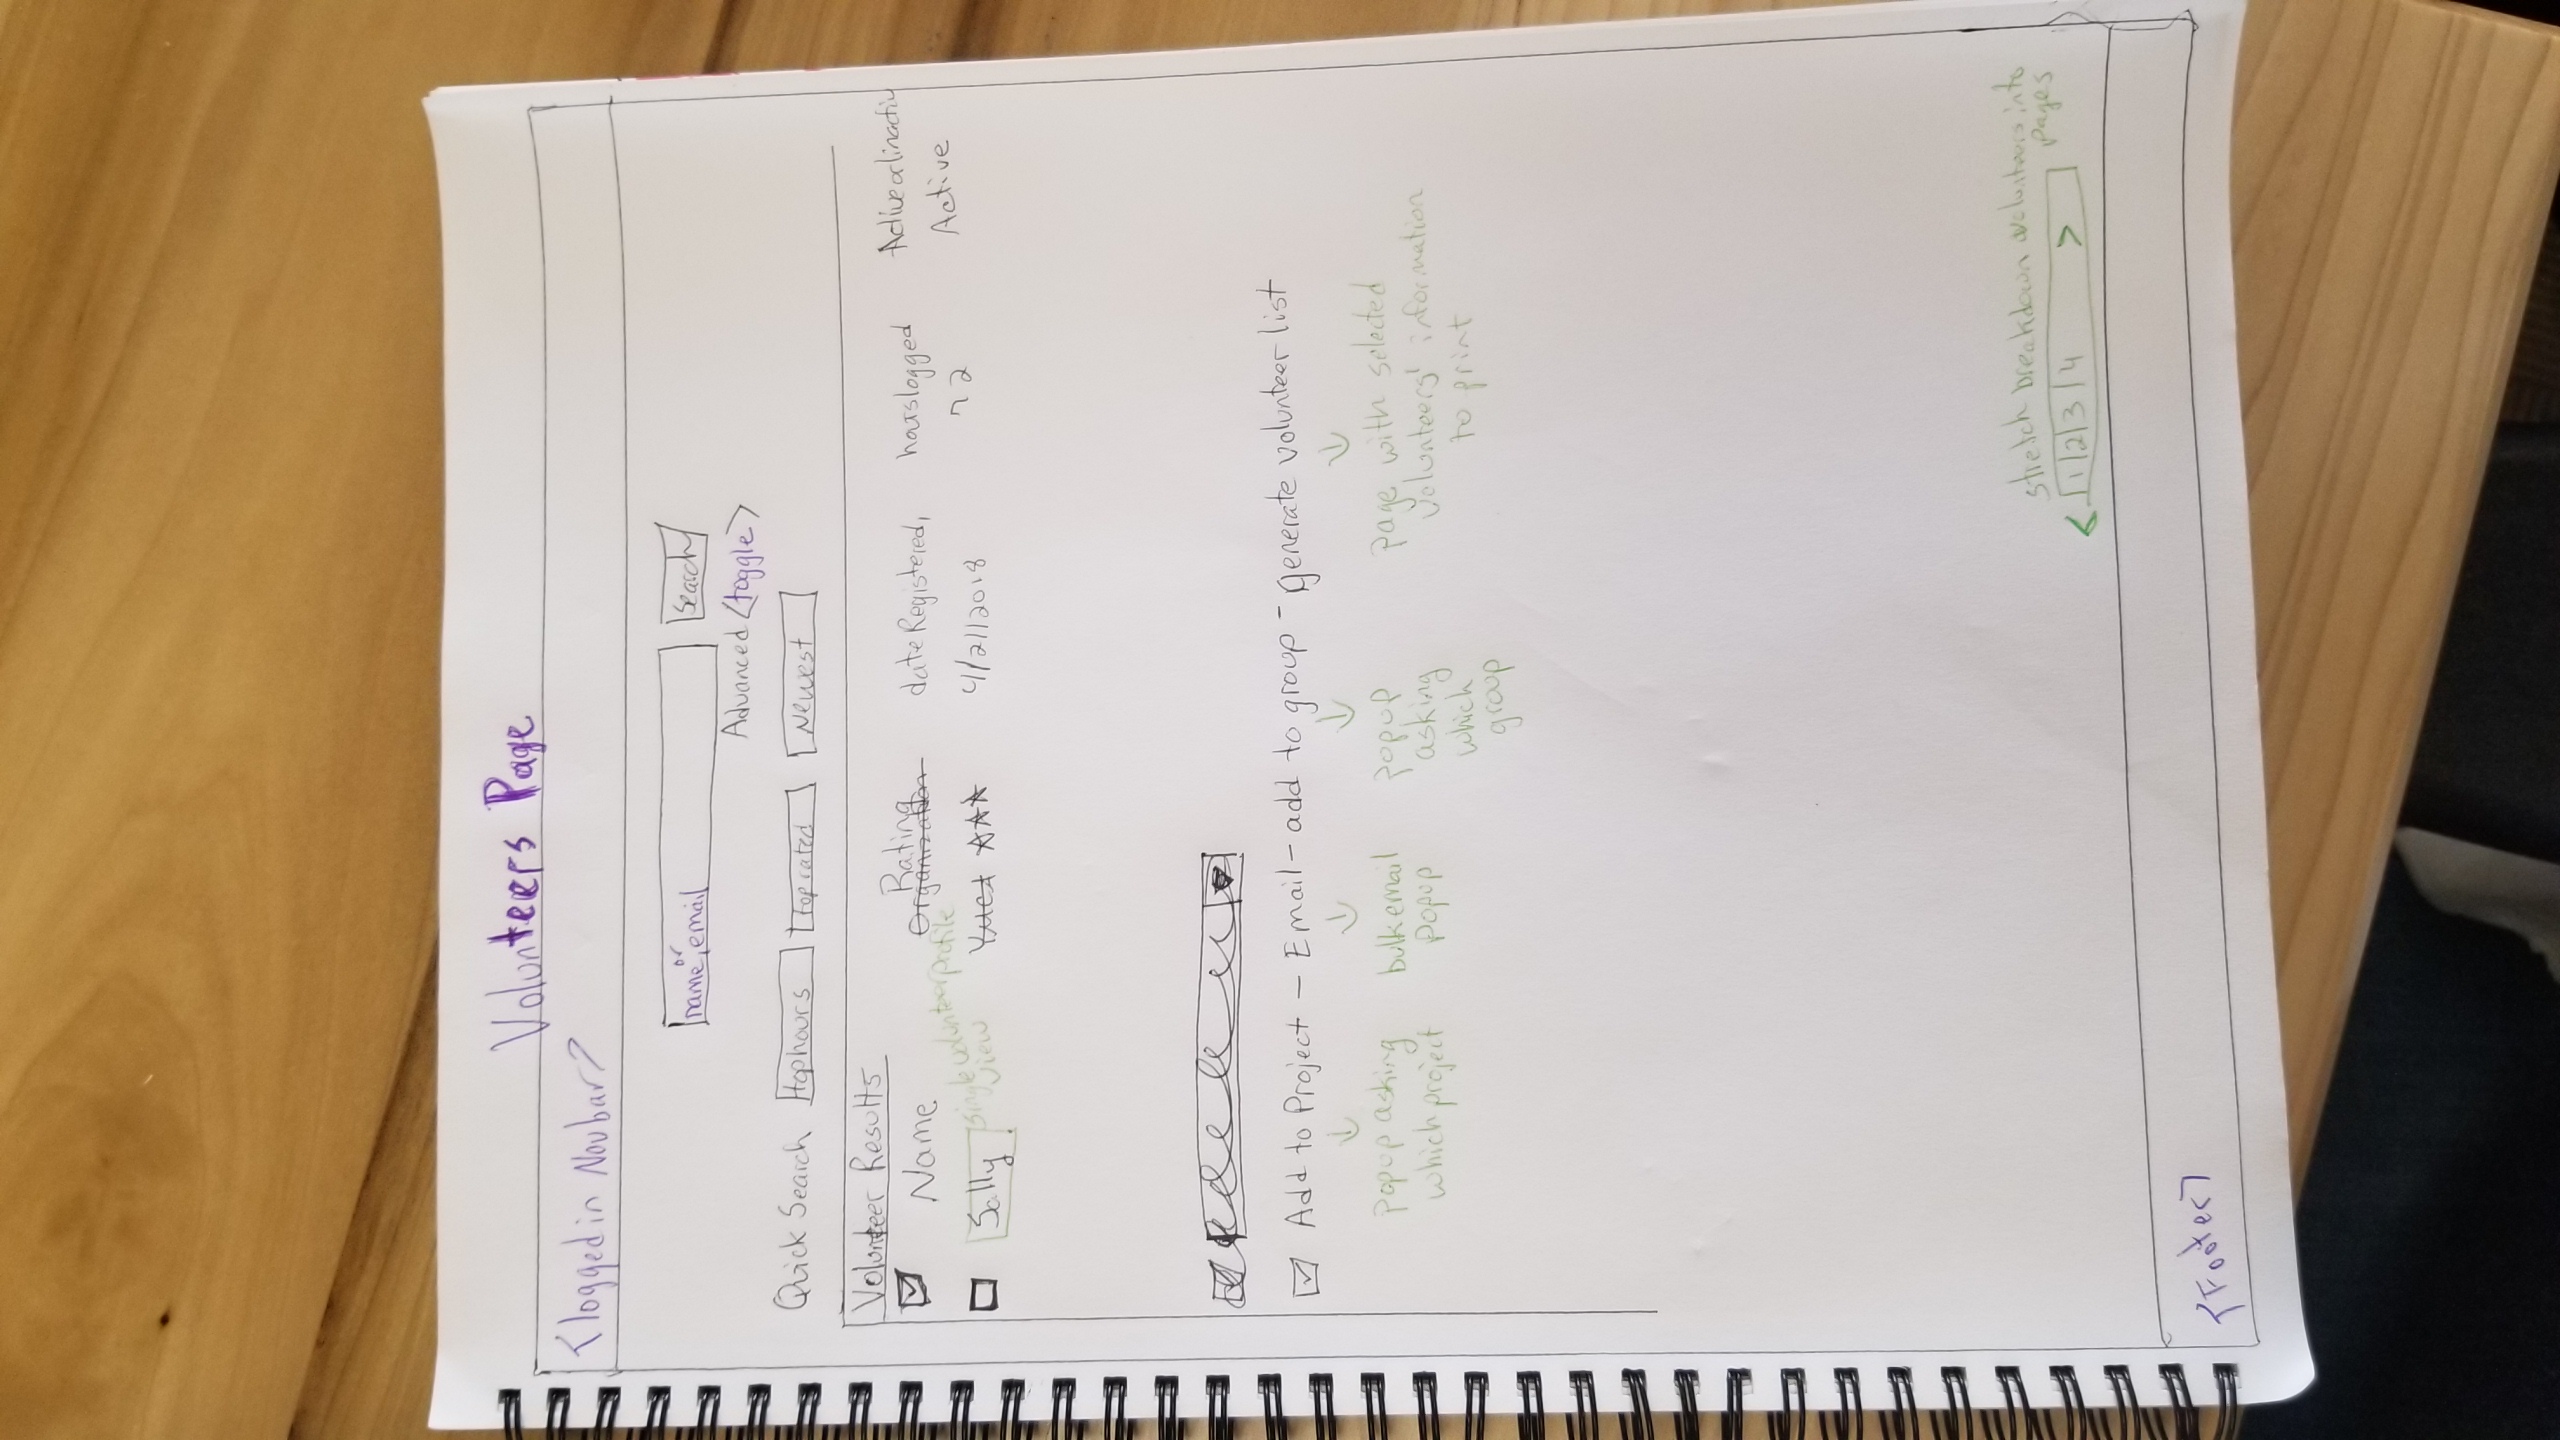 Volunteers Page
<logged in Navbar>
name, or email Search
Advanced <toggle>
Quick Search #tophours top rated Newest
Volunteer Results
Name Rating Organization dateRegistered, hours logged Active or Inactiv
Sally single volunteer profile view 4/21/2018 72 Active
Add to Project - Email - add to group - generate volunteer list
popup asking which project
bulk email popup
popup asking which group
page with selected volunteers' information to print
stretch breakdown volunteers into pages
< 1 | 2 | 3 | 4 >
<Footer>